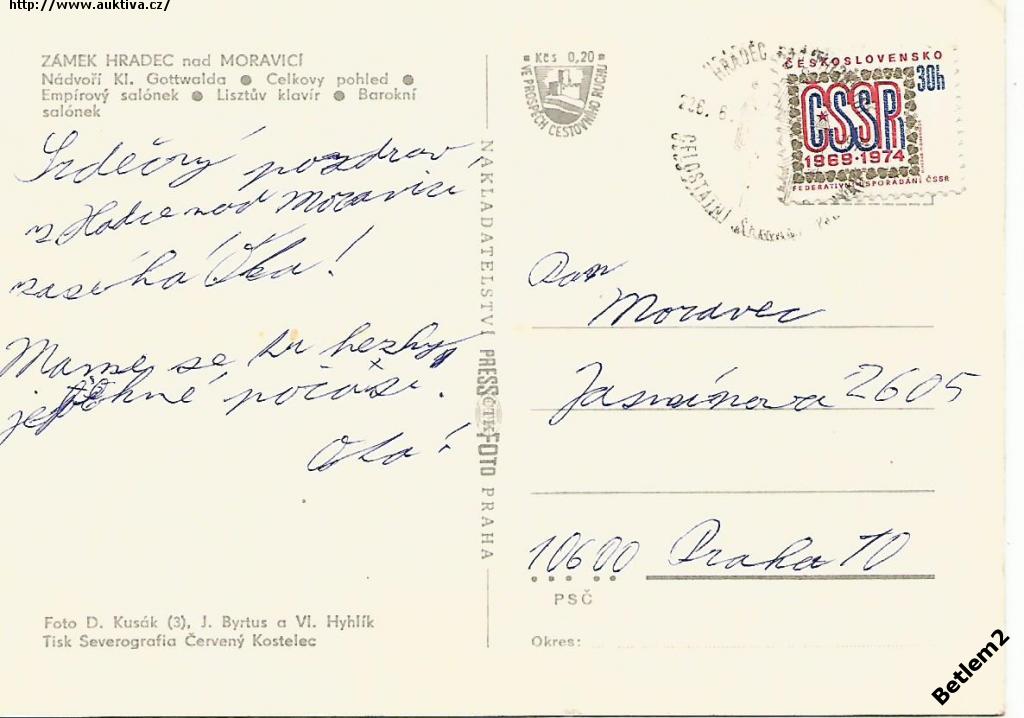 http://www.auktiva.cz/
ZÁMEK HRADEC nad MORAVICÍ
Nádvoří Kl. Gottwalda ● Celkovy pohled ●
Empírový salónek ● Lisztův klavír ● Barokní
salónek
Srdečný pozdrav
z Hradce nad Moravicí
zasílá
Máme se tu hezky
je pěkné počasí.
NAKLADATELSTVÍ PRESSFOTO PRAHA
ČTK
Kčs 0,20
VE PROSPĚCH CESTOVNÍHO RUCHU
HRADEC
26. 6.
CELOSTÁTNÍ
ČESKOSLOVENSKO
30h
ČSSR
1969·1974
FEDERATIVNÍ USPOŘÁDÁNÍ ČSSR
Pan
Moravec
Jasmínová 2605
10600 Praha 10
PSČ
Okres:
Foto D. Kusák (3), J. Byrtus a Vl. Hyhlík
Tisk Severografia Červený Kostelec
Betlem2